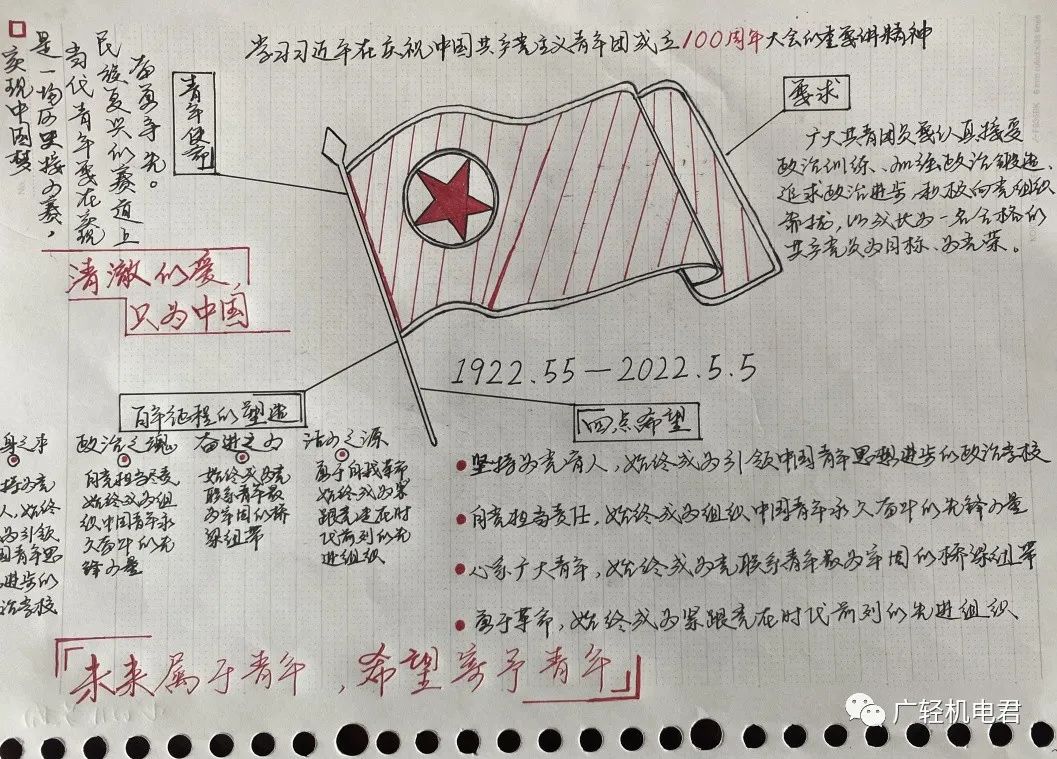 学习习近平在庆祝中国共产党主义青年团成立100周年大会的重要讲精神
实现中国梦
是一场历史接力赛，
当代青年要在实现
民族复兴的赛道上
奋勇争先。
青年使命
要求
广大共青团员要认真接受
政治训练、加强政治锻造、
追求政治进步，积极向党组织
靠拢，以成长为一名合格的
共产党员为目标、为光荣。
清澈的爱，
只为中国
1922.55—2022.5.5
百年征程的塑造
四点希望
身之本
持为党
人，始终
为引领
国青年思
进步的
治学校
政治之魂
向党担当尽责
始终成为组
织中国青年永
久奋斗的先
锋力量
奋进之力
始终成为党
联系青年最
为牢固的桥
梁纽带
活力之源
勇于自我革命
始终成为紧
跟党走在时
代前列的先
进组织
坚持为党育人，始终成为引领中国青年思想进步的政治学校
向党担当责任，始终成为组织中国青年永久奋斗的先锋力量
心系广大青年，始终成为党联系青年最为牢固的桥梁纽带
勇于革命，始终成为紧跟党在时代前列的先进组织
「未来属于青年，希望寄予青年」
广轻机电君